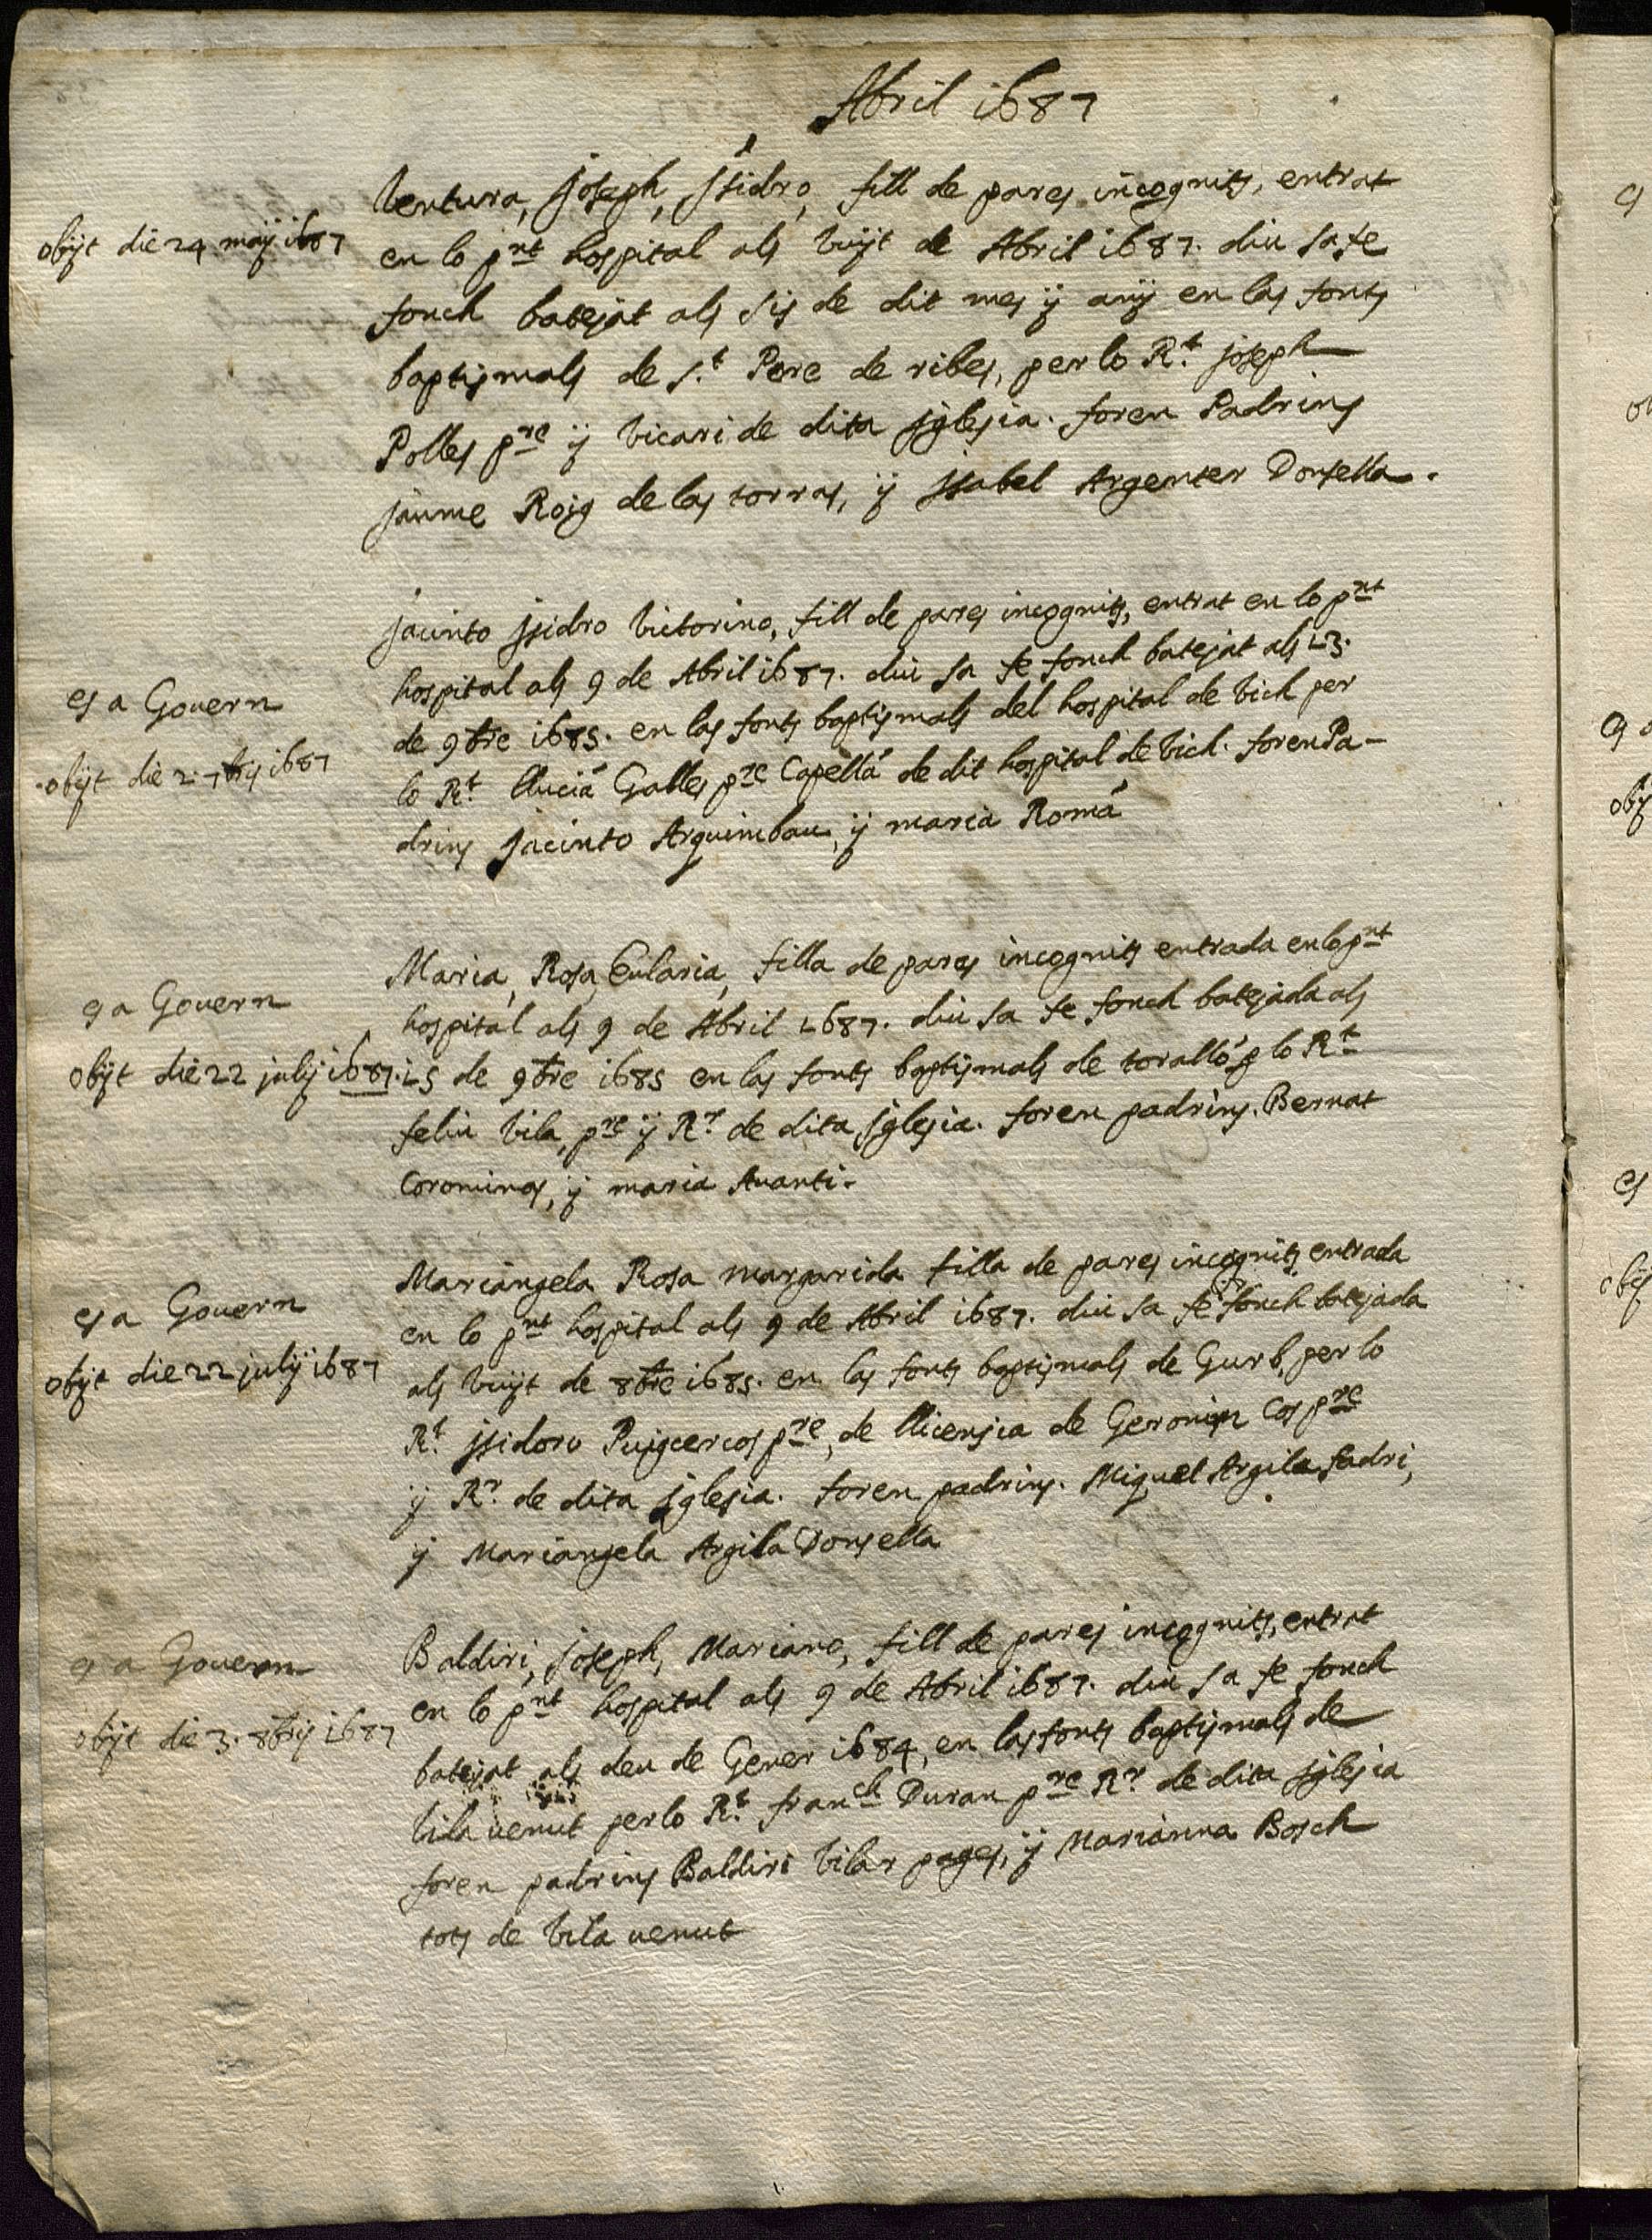 Abril 1687
obijt die 24 maij 1687
Ventura, Joseph, Isidro, fill de pares incognits, entrat
en lo pnt hospital als vuyt de Abril 1687. diu sa fe
fonch batejat als sis de dit mes ÿ anÿ en las fonts
baptismals de St. Pere de ribes, per lo Rt. joseph
Polles pre ÿ vicari de dita Iglesia. foren Padrins
jaume Roig de las torras, ÿ Isabel Argenter Donsella.
es a Govern
obijt die 2. 7bris 1687
Jacinto Isidro Victorino, fill de pares incognits, entrat en lo pnt
hospital als 9 de Abril 1687. diu sa fe fonch batejat als 23.
de 9bre 1685. en las fonts baptismals del hospital de Vich per
lo Rt. Llucià Galles pre Capellá de dit hospital de Vich. foren Pa-
drins Jacinto Arquimbau, ÿ maria Romá
es a Govern
obijt die 22 julij 1687.
Maria, Rosa, Eularia, filla de pares incognits entrada en lo pnt
hospital als 9 de Abril 1687. diu sa fe fonch batejada als
15 de 9bre 1685 en las fonts baptismals de toralló p lo Rt
feliu Vila, pre ÿ Rr de dita Iglesia. foren padrins. Bernat
Corominas, ÿ maria Avanti.
es a Govern
obijt die 22 julij 1687
Mariangela Rosa margarida filla de pares incognits entrada
en lo pnt hospital als 9 de Abril 1687. diu sa fe fonch batejada
als vuyt de 8bre 1685. en las fonts baptismals de Gurb, per lo
Rt. Isidoro Puigcercos pre, de llicensia de Geronim Cos pre
ÿ Rr. de dita Iglesia. foren padrins. Miquel Argila fadri,
ÿ Mariangela Argila Donsella
es a Govern
obijt die 3. 8bris 1687
Baldiri, Joseph, Mariano, fill de pares incognits, entrat
en lo pnt hospital als 9 de Abril 1687. diu sa fe fonch
batejat als deu de Gener 1684, en las fonts baptismals de
Vila venut per lo Rt. franch Duran pre Rr de dita Iglesia
foren padrins Baldiri Vilar pages, ÿ Marianna Bosch
tots de Vila venut